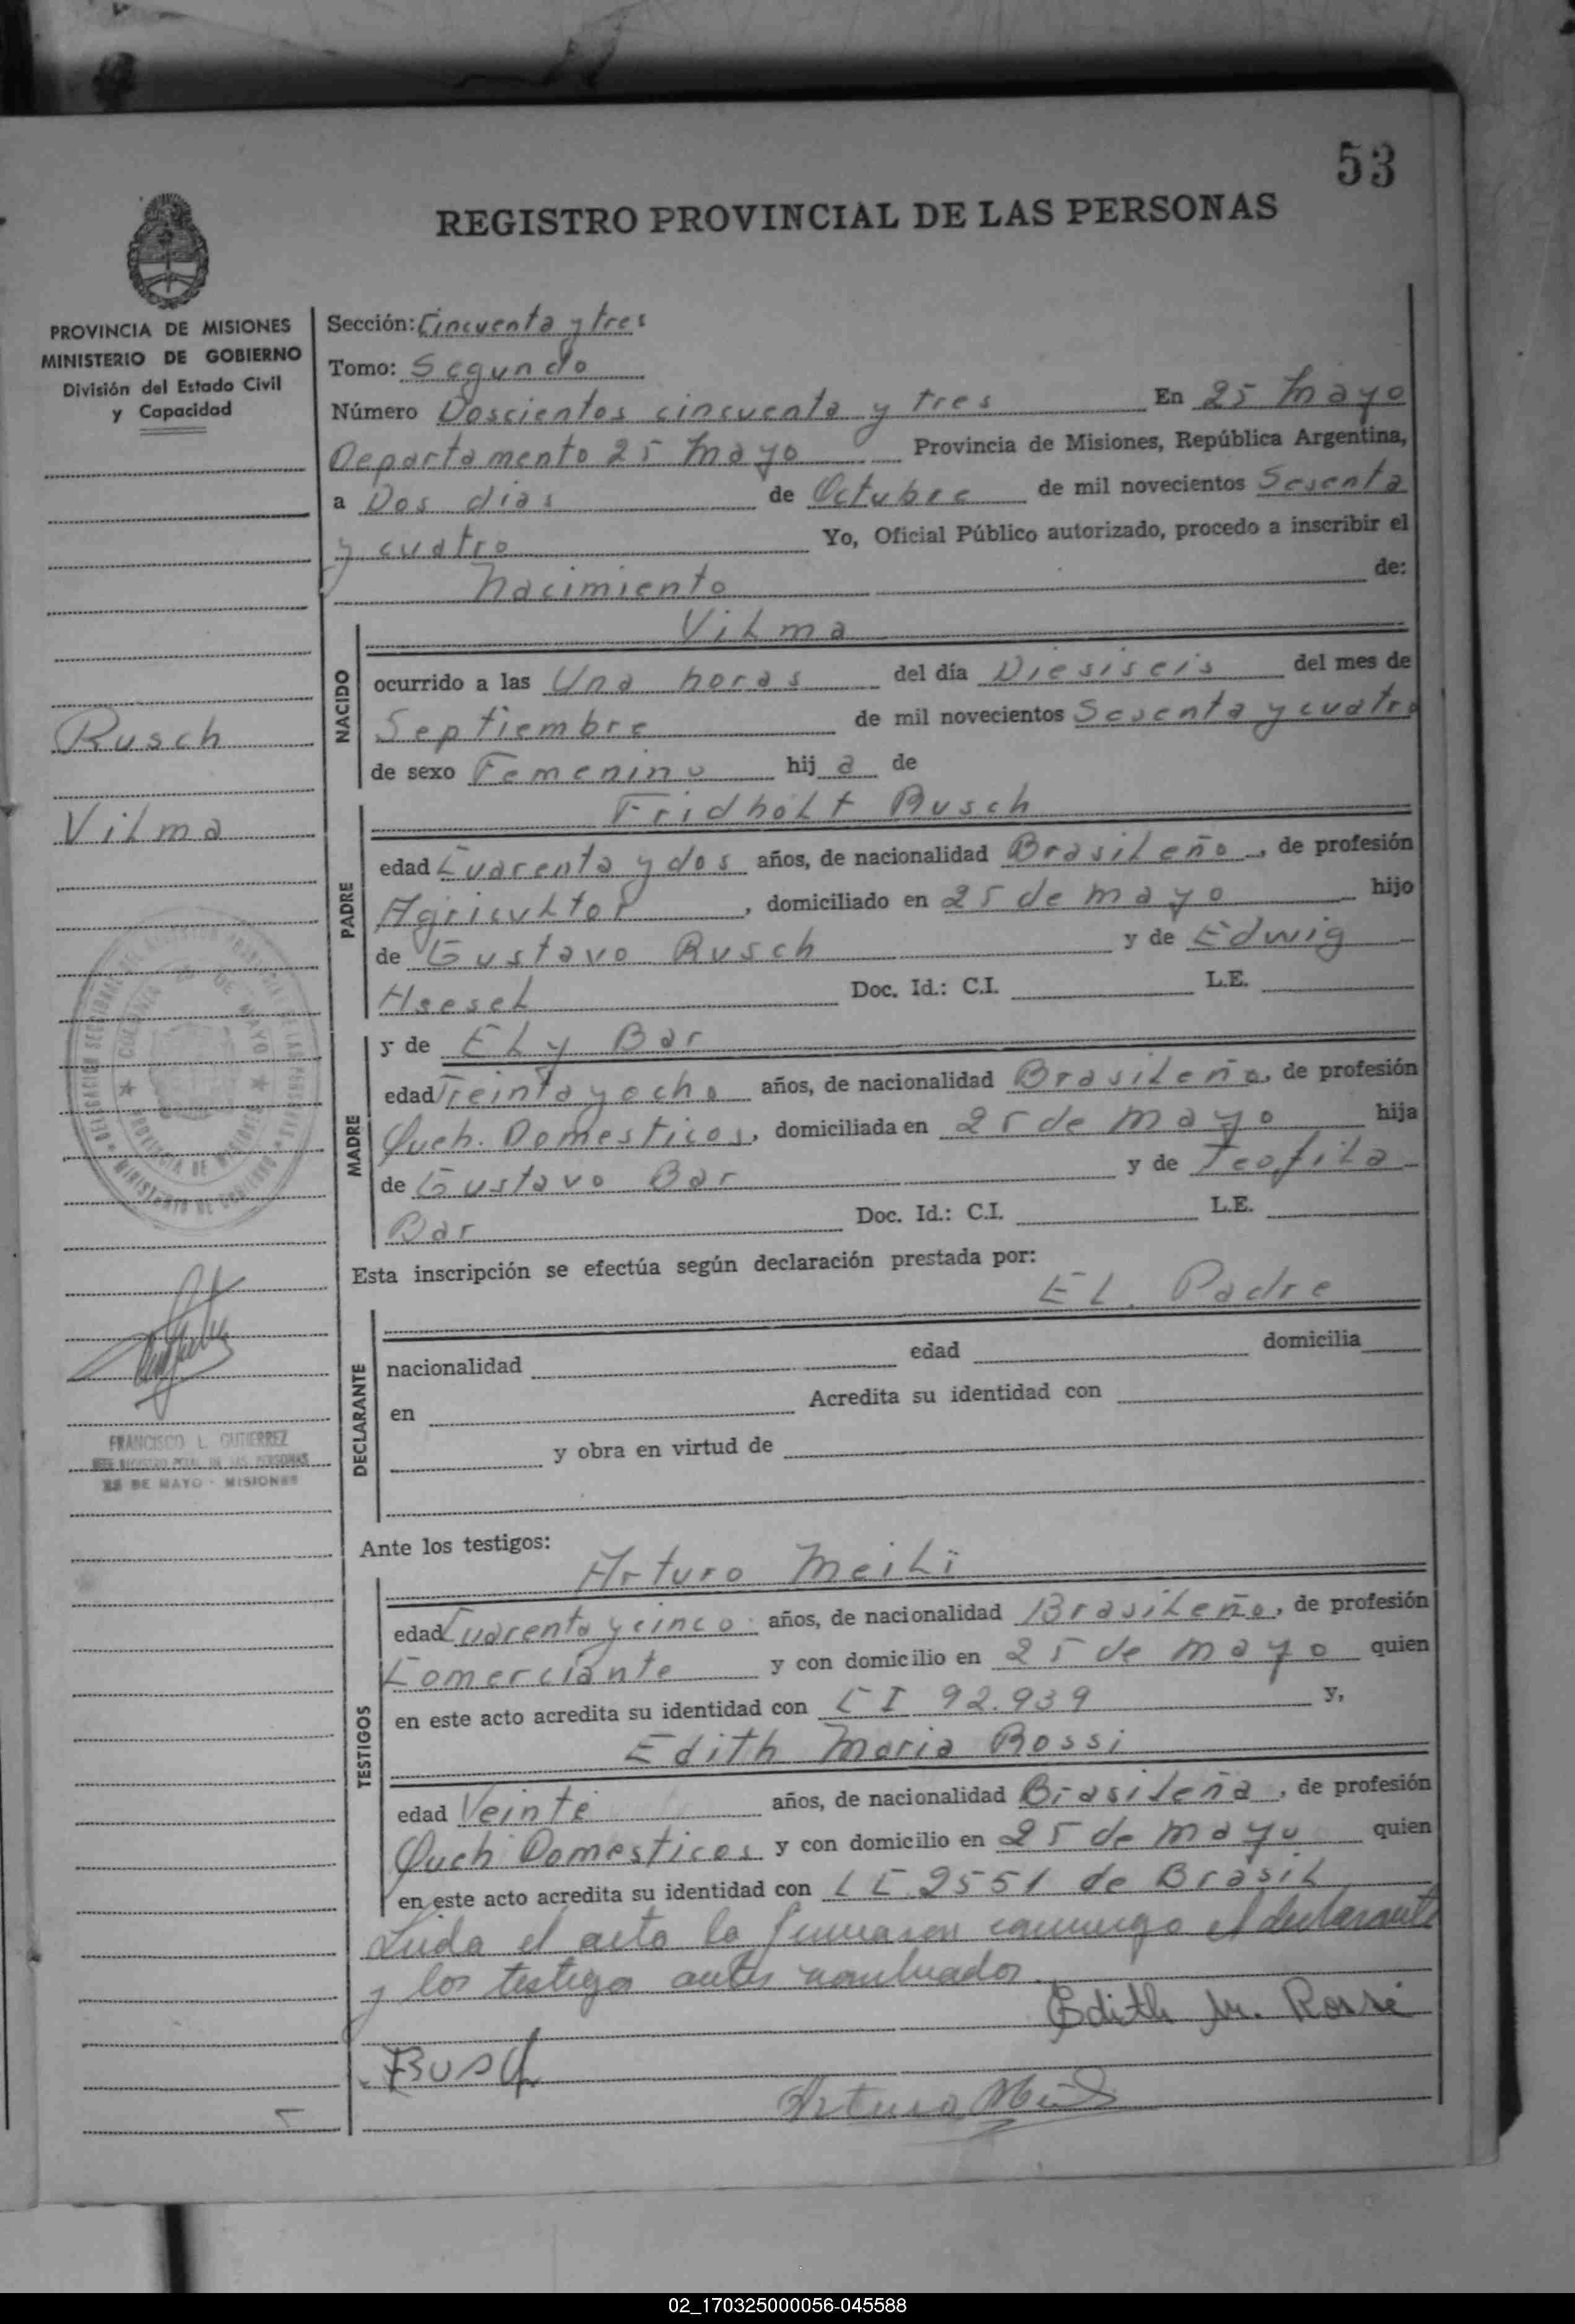 53
REGISTRO PROVINCIAL DE LAS PERSONAS
PROVINCIA DE MISIONES
MINISTERIO DE GOBIERNO
División del Estado Civil
y Capacidad
Rusch
Vilma
DELEGACION SECCIONAL
COLONIA 25 DE MAYO
PROVINCIA DE MISIONES
MINISTERIO DE GOBIERNO
FRANCISCO L. GUTIERREZ
JEFE REGISTRO PCIAL DE LAS PERSONAS
25 DE MAYO - MISIONES
Sección: Cincuenta y tres
Tomo: Segundo
Número Doscientos cincuenta y tres En 25 Mayo
Departamento 25 Mayo Provincia de Misiones, República Argentina,
a Dos dias de Octubre de mil novecientos Sesenta
y cuatro Yo, Oficial Público autorizado, procedo a inscribir el
Nacimiento de:
Vilma
NACIDO
ocurrido a las Una horas del día Diesiseis del mes de
Septiembre de mil novecientos Sesenta y cuatro
de sexo Femenino hij a de
Fridholt Rusch
PADRE
edad Cuarenta y dos años, de nacionalidad Brasileño, de profesión
Agricultor, domiciliado en 25 de mayo hijo
de Gustavo Rusch y de Edwig
Hsesel Doc. Id.: C.I. L.E.
y de Ely Bar
MADRE
edad Treinta y ocho años, de nacionalidad Brasileña, de profesión
Queh. Domesticos, domiciliada en 25 de mayo hija
de Gustavo Bar y de Teofila
Bar Doc. Id.: C.I. L.E.
Esta inscripción se efectúa según declaración prestada por:
El Padre
DECLARANTE
nacionalidad edad domicilia
en Acredita su identidad con
y obra en virtud de
Ante los testigos:
Arturo Meili
TESTIGOS
edad Cuarenta y cinco años, de nacionalidad Brasileño, de profesión
Comerciante y con domicilio en 25 de mayo quien
en este acto acredita su identidad con C I 92.939 y,
Edith Maria Rossi
edad Veinte años, de nacionalidad Brasileña, de profesión
Queh Domesticos y con domicilio en 25 de mayo quien
en este acto acredita su identidad con 2551 de Brasil
Leida el acta la firmaron conmigo el declarante
y los testigos antes nombrados.
Edith M. Rossi
Arturo Meili
02_170325000056-045588